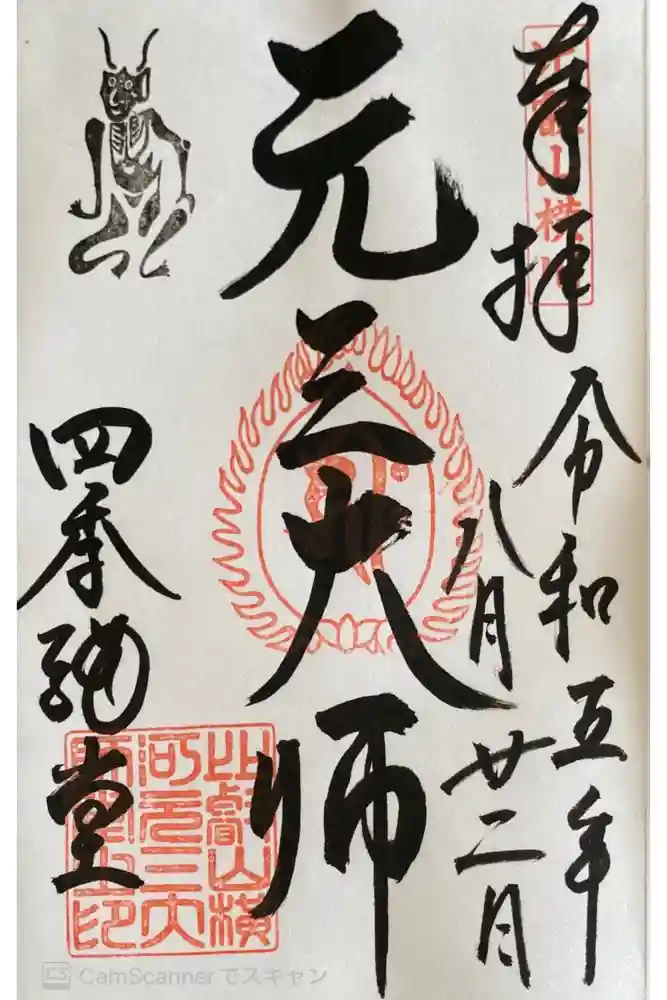 奉拝
比叡山横川
令和五年
八月廿二日
元三大師
四季講堂
比叡山横
河元三大
師堂之印
CS CamScanner でスキャン